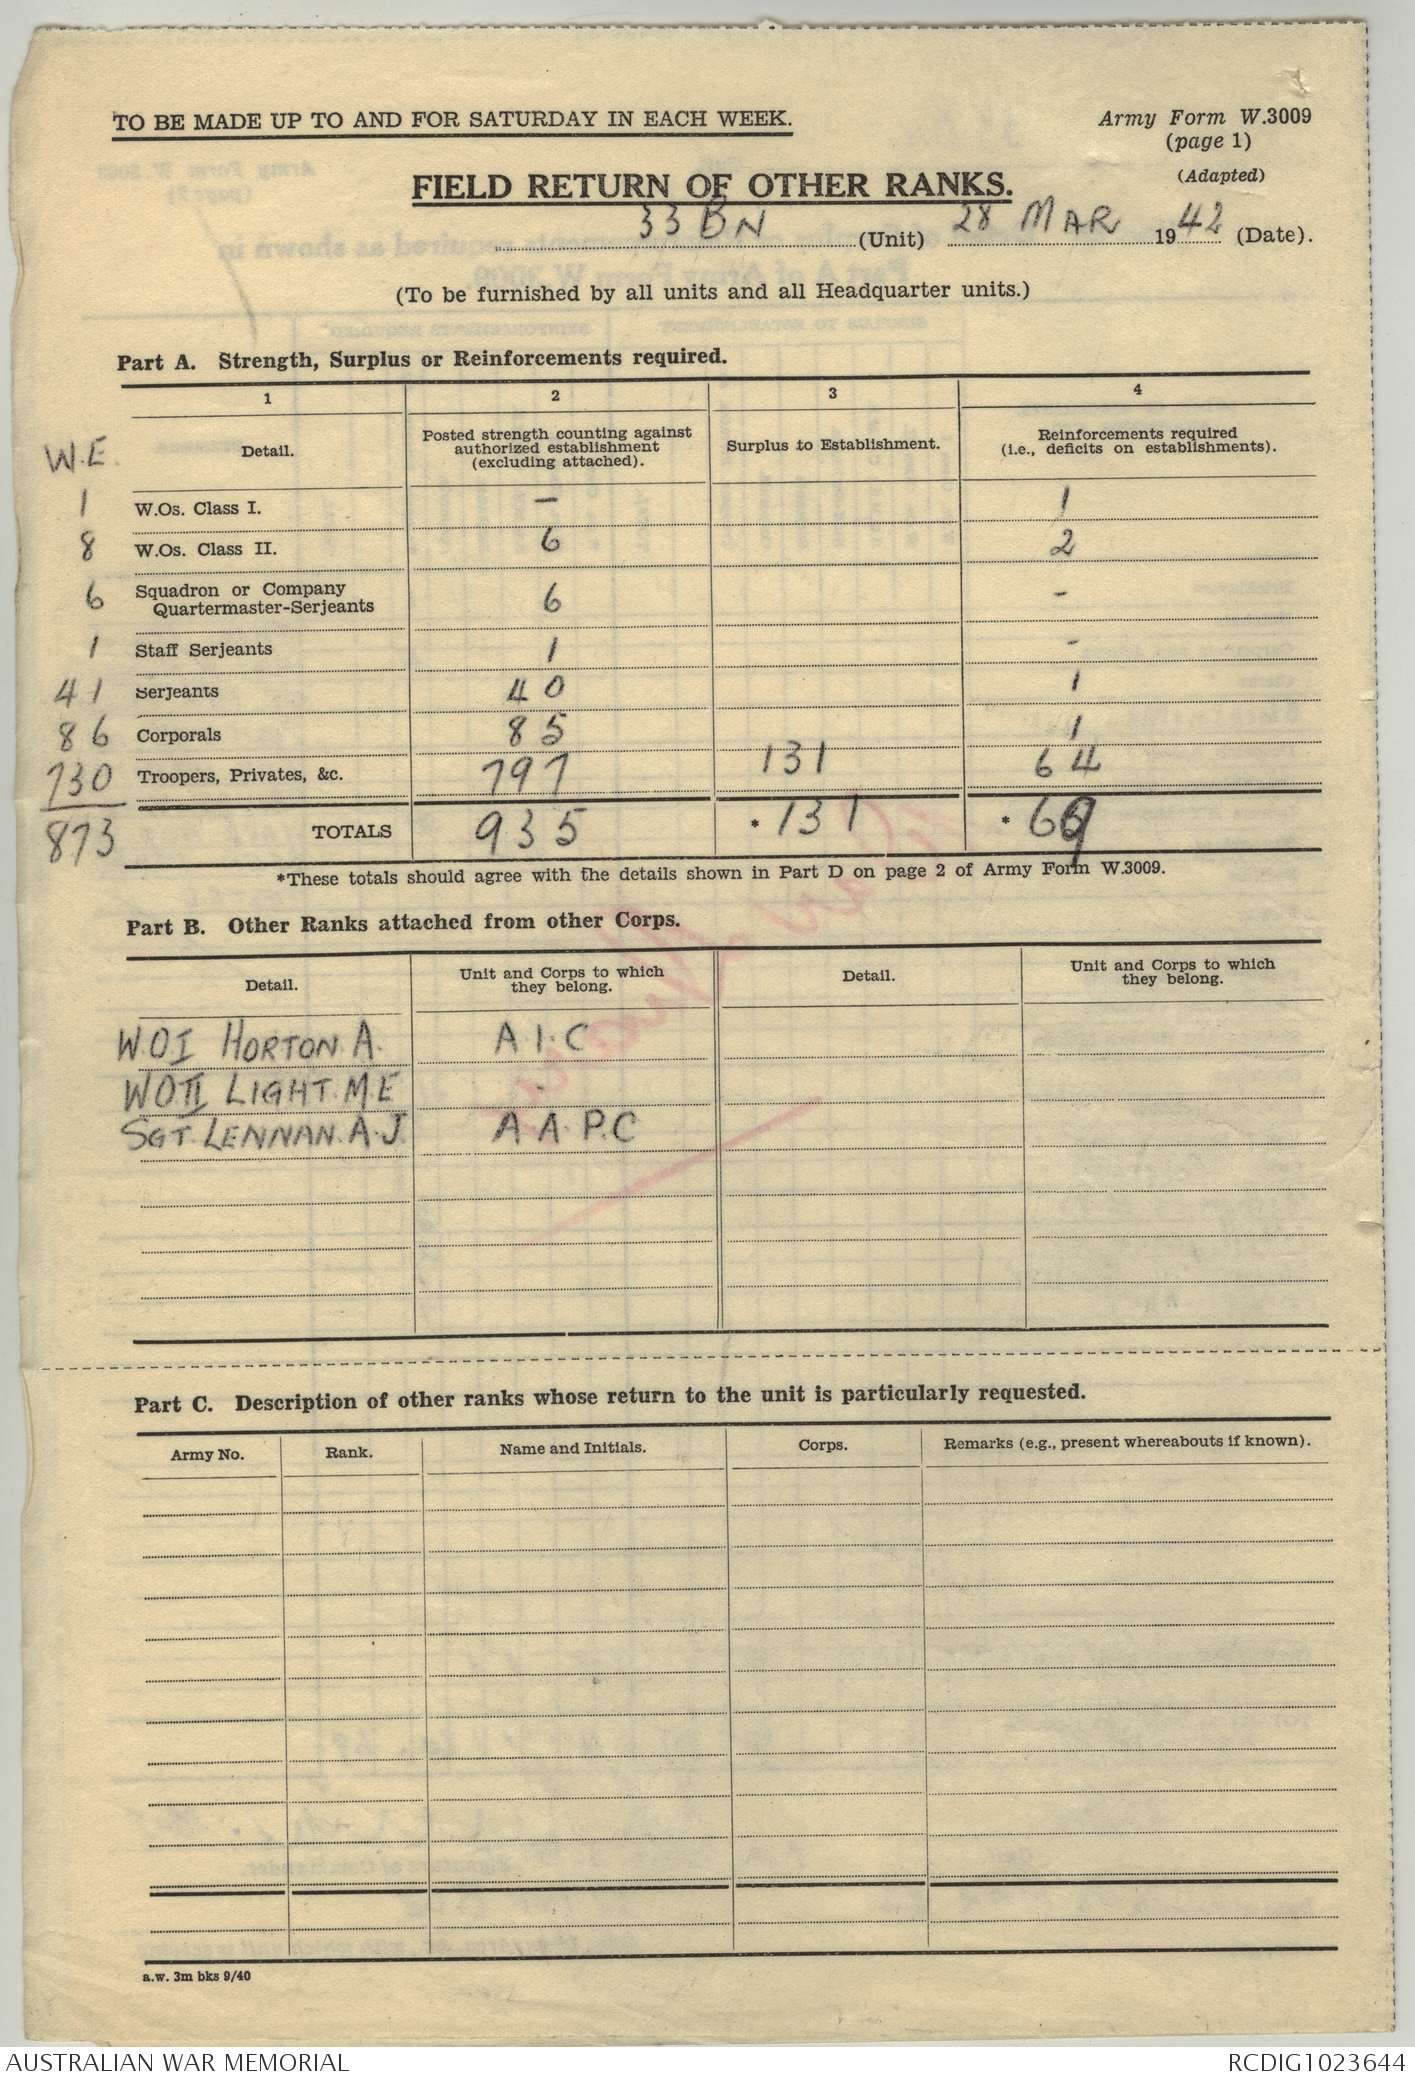 TO BE MADE UP TO AND FOR SATURDAY IN EACH WEEK.
Army Form W.3009
(page 1)
(Adapted)
FIELD RETURN OF OTHER RANKS.
33 BN (Unit) 28 MAR 1942 (Date).
(To be furnished by all units and all Headquarter units.)
Part A. Strength, Surplus or Reinforcements required.
1 2 3 4
W.E. Detail. Posted strength counting against authorized establishment (excluding attached). Surplus to Establishment. Reinforcements required (i.e., deficits on establishments).
1 W.Os. Class I. — 1
8 W.Os. Class II. 6 2
6 Squadron or Company Quartermaster-Serjeants 6 -
1 Staff Serjeants 1 -
41 Serjeants 40 1
86 Corporals 85 1
730 Troopers, Privates, &c. 797 131 64
873 TOTALS 935 * 131 * 69
*These totals should agree with the details shown in Part D on page 2 of Army Form W.3009.
Part B. Other Ranks attached from other Corps.
Detail. Unit and Corps to which they belong. Detail. Unit and Corps to which they belong.
WOI HORTON. A. A.I.C
WOII LIGHT. M.E -
SGT. LENNAN. A.J. A A.P.C
Part C. Description of other ranks whose return to the unit is particularly requested.
Army No. Rank. Name and Initials. Corps. Remarks (e.g., present whereabouts if known).
a.w. 3m bks 9/40
AUSTRALIAN WAR MEMORIAL RCDIG1023644